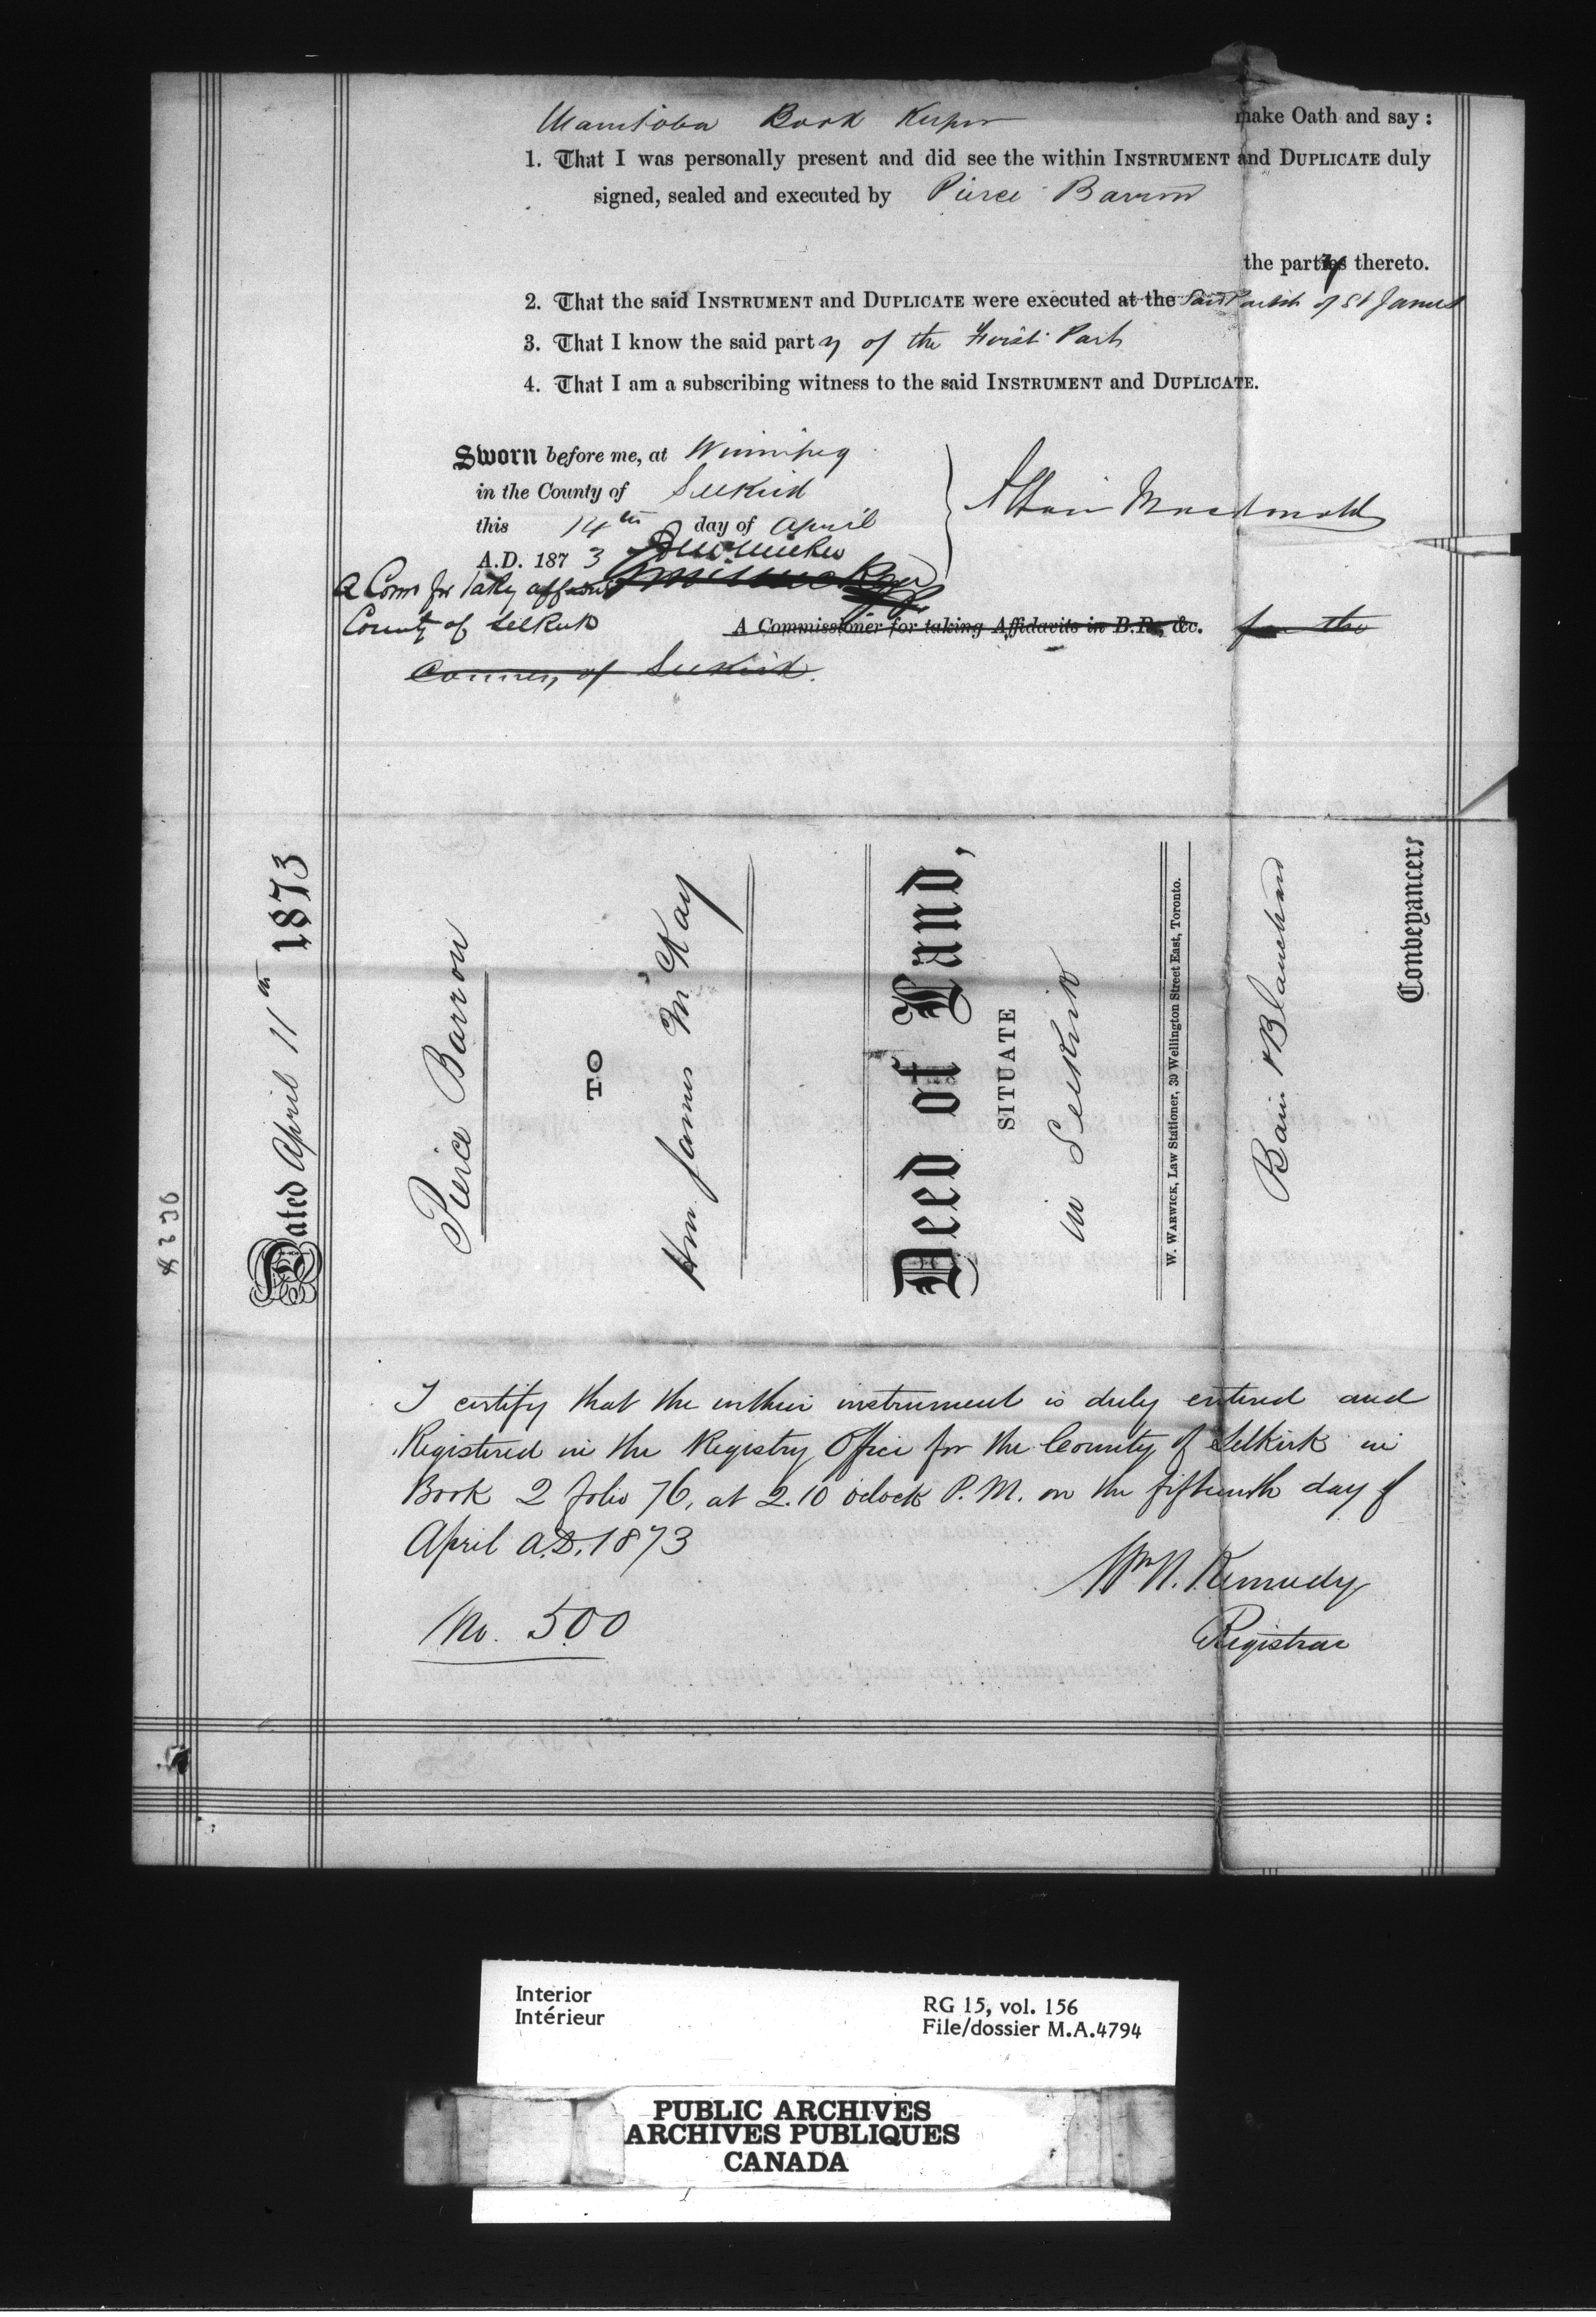 Manitoba Book Keeper make Oath and say :
1. That I was personally present and did see the within INSTRUMENT and DUPLICATE duly
signed, sealed and executed by Pierce Barron
the party thereto.
2. That the said INSTRUMENT and DUPLICATE were executed at the said Parish of St James
3. That I know the said party of the First Part
4. That I am a subscribing witness to the said INSTRUMENT and DUPLICATE.
Sworn before me, at Winnipeg
in the County of Selkirk
this 14th day of April
A.D. 1873
Macdonald
A Comr for taking
County of Selkirk
A Commissioner for taking Affidavits in B.R., &c. for the
County of Selkirk.
8236
Dated April 11th 1873
Pierce Barron
TO
Hon James McKay
Deed of Land,
SITUATE
in Selkirk
W. WARWICK, Law Stationer, 30 Wellington Street East, Toronto.
Bain & Blanchard
Conveyancers
I certify that the within instrument is duly entered and
Registered in the Registry Office for the County of Selkirk in
Book 2 folio 76, at 2.10 oclock P.M. on the fifteenth day of
April A.D. 1873
Wm N. Kennedy
Registrar
No. 500
Interior
Intérieur
RG 15, vol. 156
File/dossier M.A.4794
PUBLIC ARCHIVES
ARCHIVES PUBLIQUES
CANADA